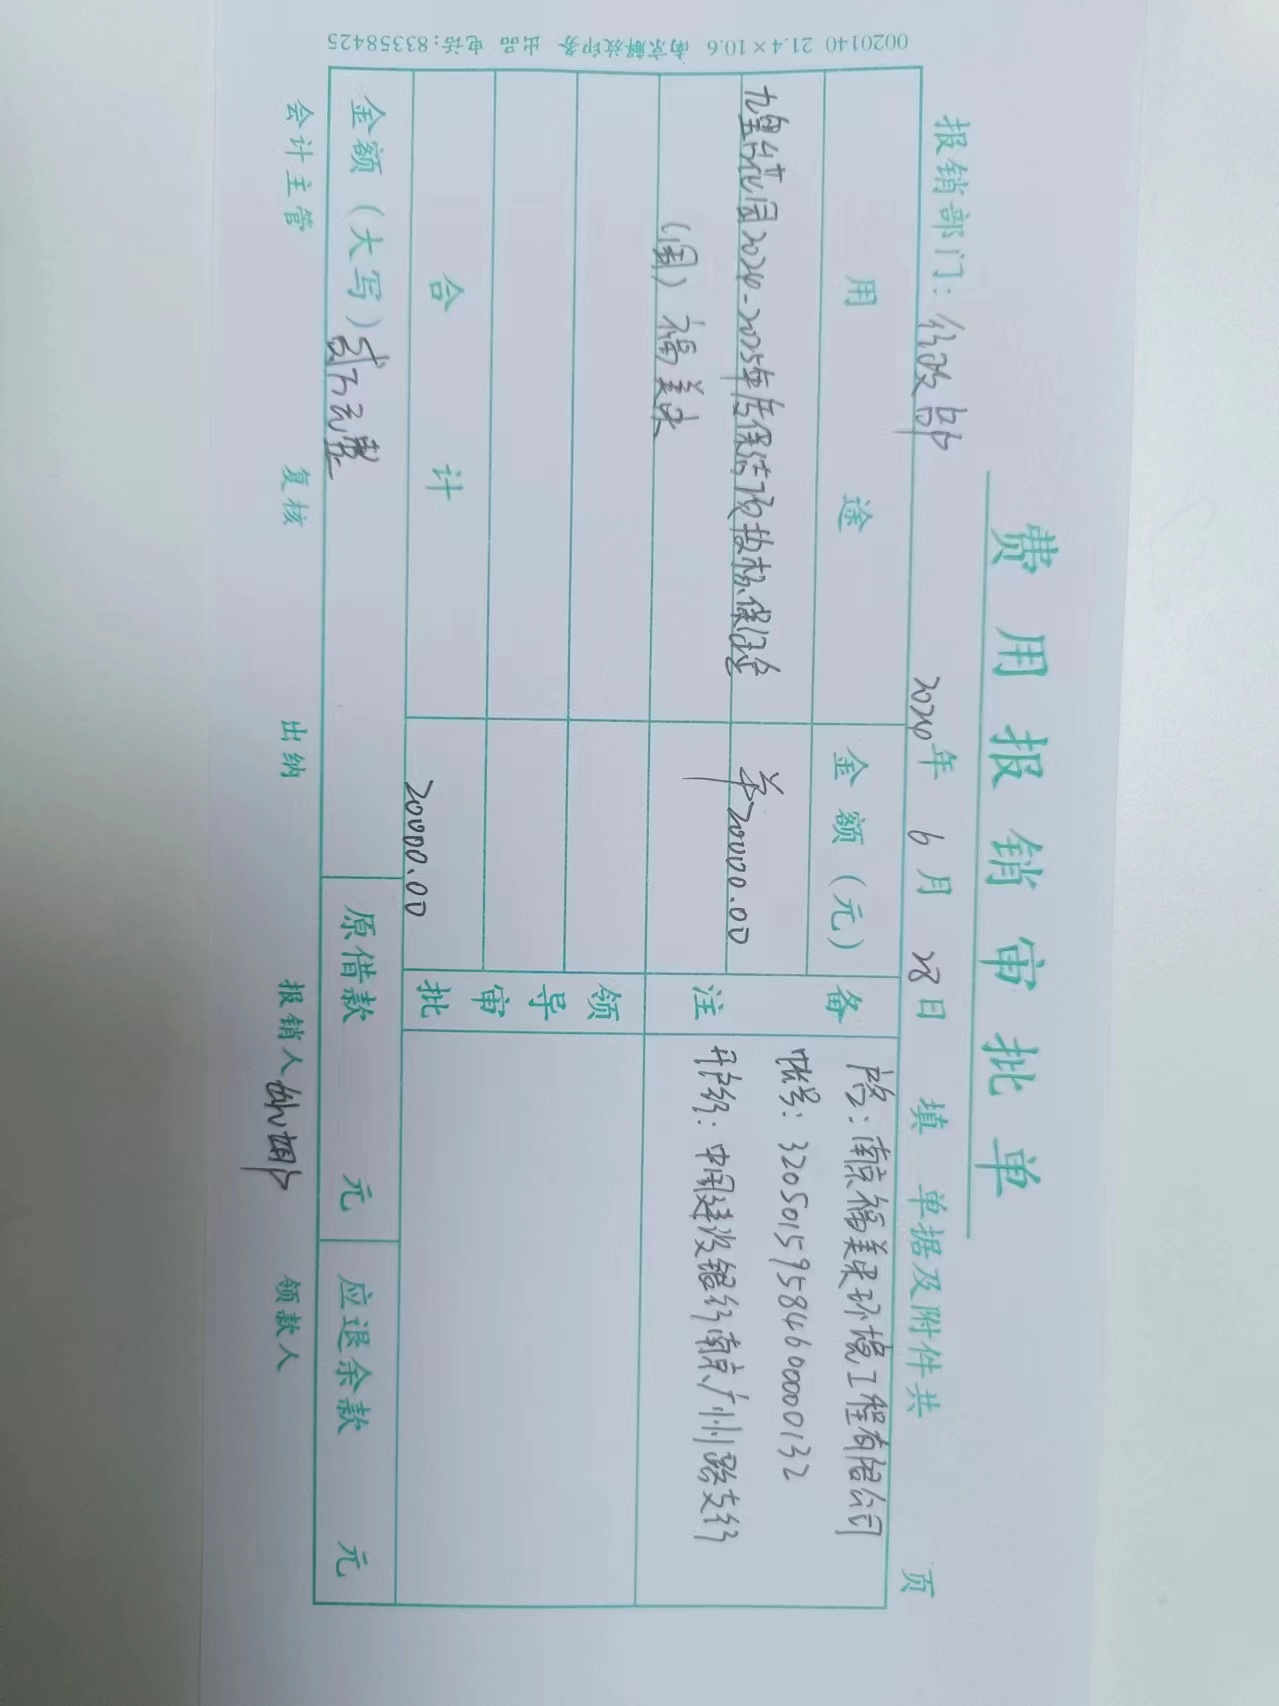 费用报销审批单
报销部门：行政部 2024年6月28日填 单据及附件共 页
用途 金额（元） 备注
九玺花园2024-2025年度保洁项投标保证金 ￥20000.00
（退）福美来
户名：南京福美来环境工程有限公司
帐号：32050159584600000132
开户行：中国建设银行南京广州路支行
领导审批
合计 20000.00
金额（大写）贰万元整 原借款 元 应退余款 元
会计主管 复核 出纳 报销人 领款人
0020140 21.4×10.6 南京解放印务 出品 电话：83358425